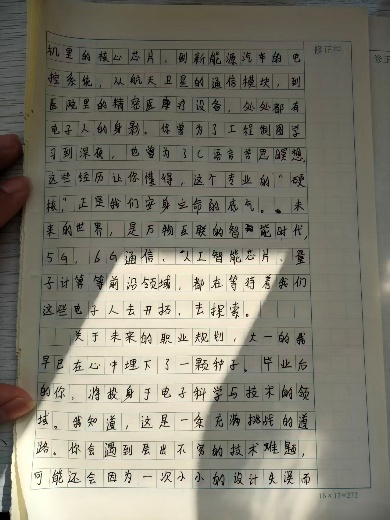 机里的核心芯片，到新能源汽车的电
修正栏
控系统，从航天卫星的通信模块，到
医院里的精密医疗设备，处处都有
电子人的身影。你曾为了工程制图学
习到深夜，也曾为了C语言苦思冥想，
这些经历让你懂得，这个专业的"硬
核"，正是我们安身立命的底气。未
来的世界，是万物互联的智能时代，
5G，6G通信、人工智能芯片、量
子计算等前沿领域，都在等待着我们
这些电子人去开拓，去探索。
关于未来的职业规划，大一的我
早已在心中埋下了一颗种子。毕业后
的你，将投身于电子科学与技术的领
域。我知道，这是一条充满挑战的道
路。你会遇到层出不穷的技术难题，
可能还会因为一次小小的设计失误而
16×17=272